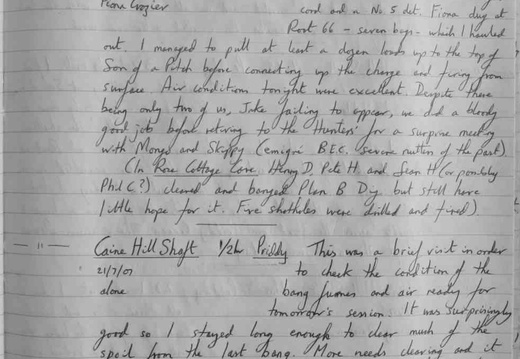 Fiona Crozier
cord and a No. 5 det. Fiona dug at
Root 66 - seven bags - which I hauled
out. I managed to pull at least a dozen loads up to the top of
Son of a Pitch before connecting up the charge and firing from
surface. Air conditions tonight were excellent. Despite there
being only two of us, Jake failing to appear, we did a bloody
good job before retiring to the Hunters' for a surprise meeting
with Mongo and Skippy (emigré B.E.C. sewine nutters of the past).
(In Rose Cottage Cave Henry D, Pete H and Sean H (or possibly
Phil C?) cleared and banged Plan B Dig but still have
little hope for it. Five shotholes were drilled and fired).
— 11 —
Caine Hill Shaft 1/2hr Priddy This was a brief visit in order
21/7/07 to check the condition of the
alone bang fumes and air ready for
tomorrow's session. It was surprisingly
good so I stayed long enough to clear much of the
spoil from the last bang. More needs clearing and it